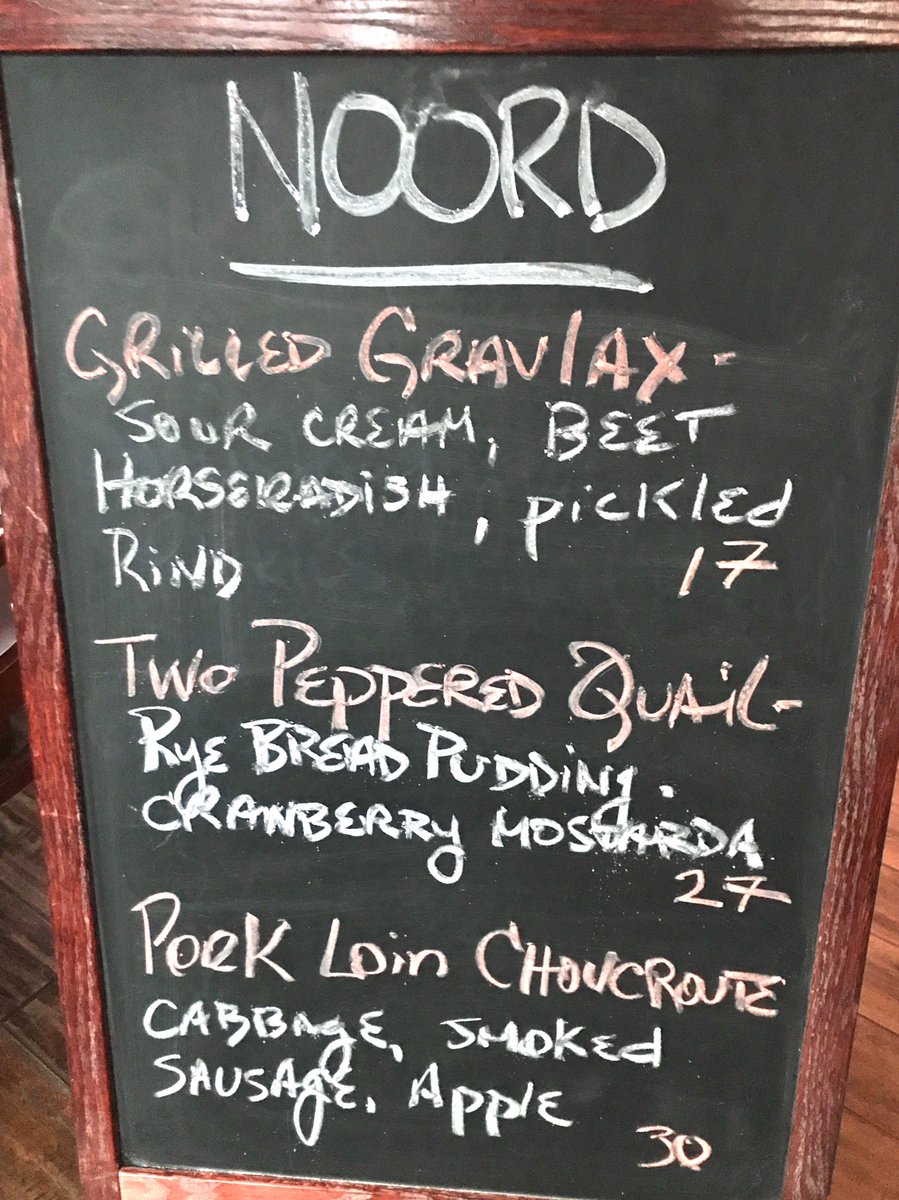 NOORD
GRILLED GRAVLAX-
SOUR CREAM, BEET
HORSERADISH, pickled
RIND 17
TWO PEPPERED QUAIL-
Rye BREAD PUDDING.
CRANBERRY MOSTARDA
27
PORK LOIN CHOUCROUTE
CABBAGE, SMOKED
SAUSAGE, Apple
30